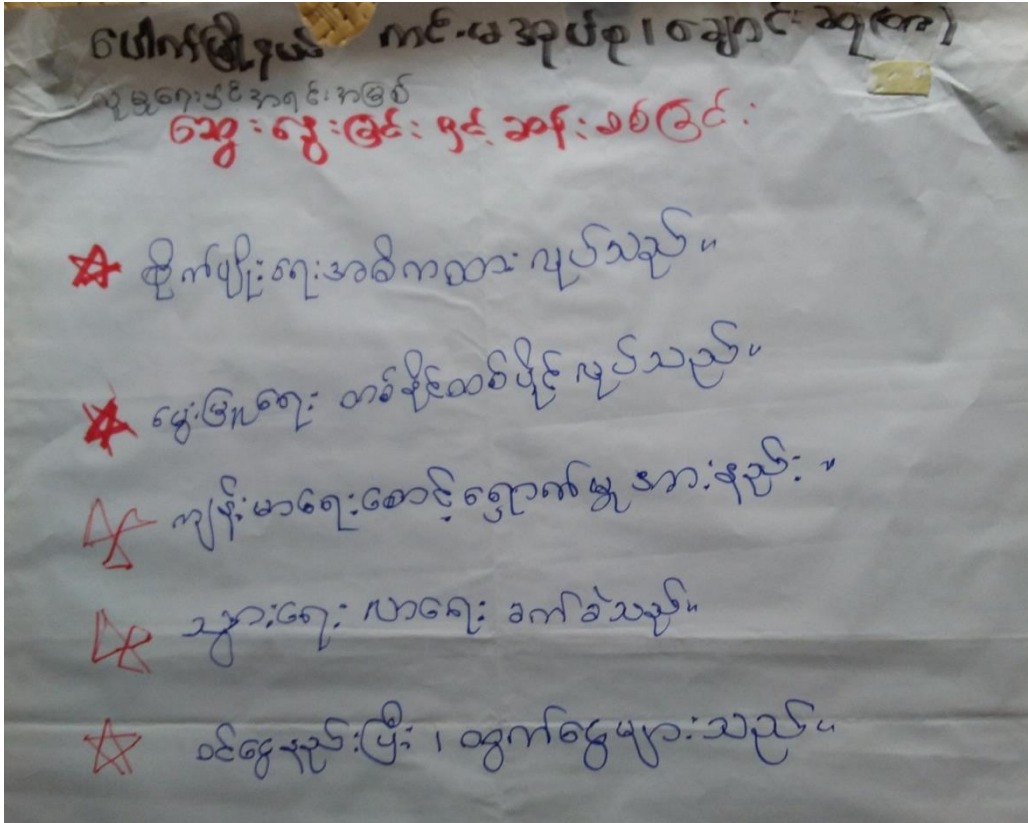 ပေါက်မြို့နယ် ကင်းမအုပ်စု၊ ချောင်းဆူ(ကြား)
လူမှုရေးနှင့်အရင်းအမြစ်
ဆွေးနွေးခြင်း နှင့် ဆန်းစစ်ခြင်း
စိုက်ပျိုးရေးအဓိကထား လုပ်သည်။
မွေးမြူရေး တစ်နိုင်တစ်ပိုင် လုပ်သည်။
ကျန်းမာရေးစောင့်ရှောက်မှု အားနည်း။
သွားရေး လာရေး ခက်ခဲသည်။
ဝင်ငွေနည်းပြီး ၊ ထွက်ငွေများသည်။